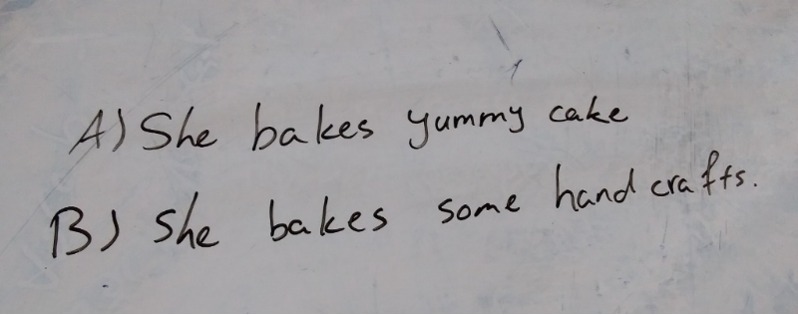 A) She bakes yummy cake
B) She bakes some hand crafts.